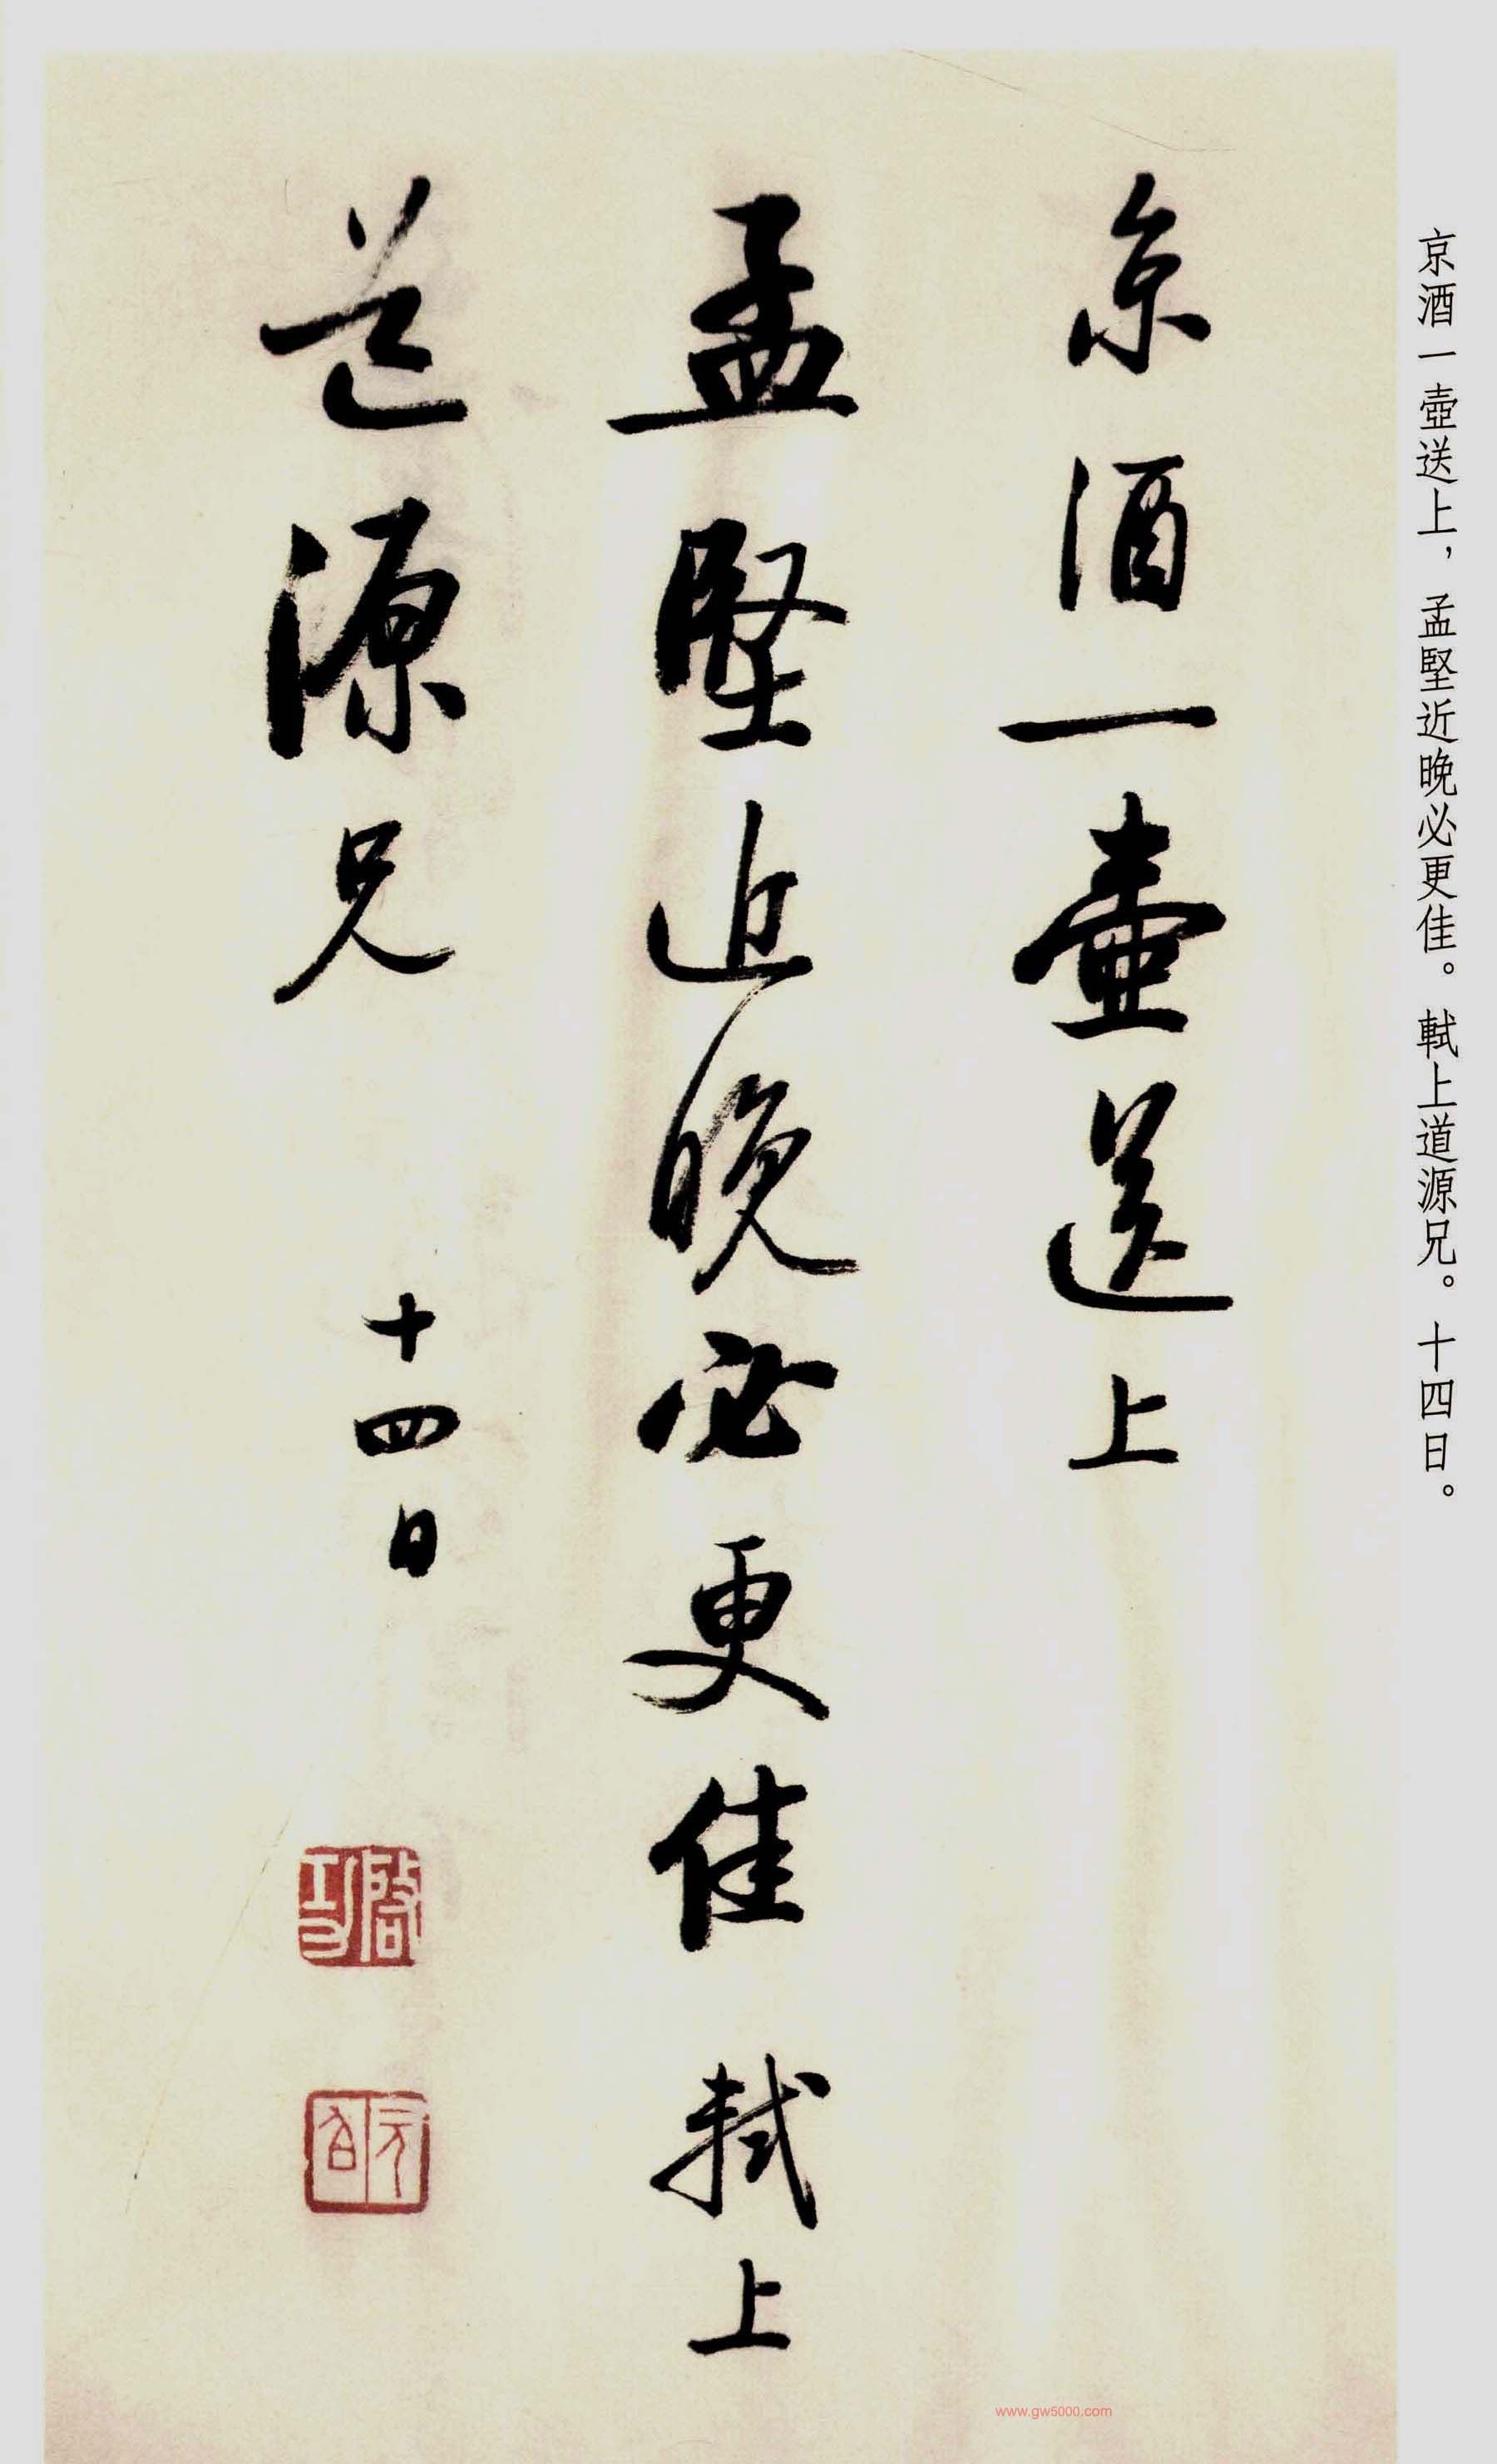 京酒一壺送上，孟堅近晚必更佳。軾上道源兄。十四日。
京酒一壺送上
孟堅近晚必更佳 軾上
道源兄 十四日
啓功
元白
www.gw5000.com